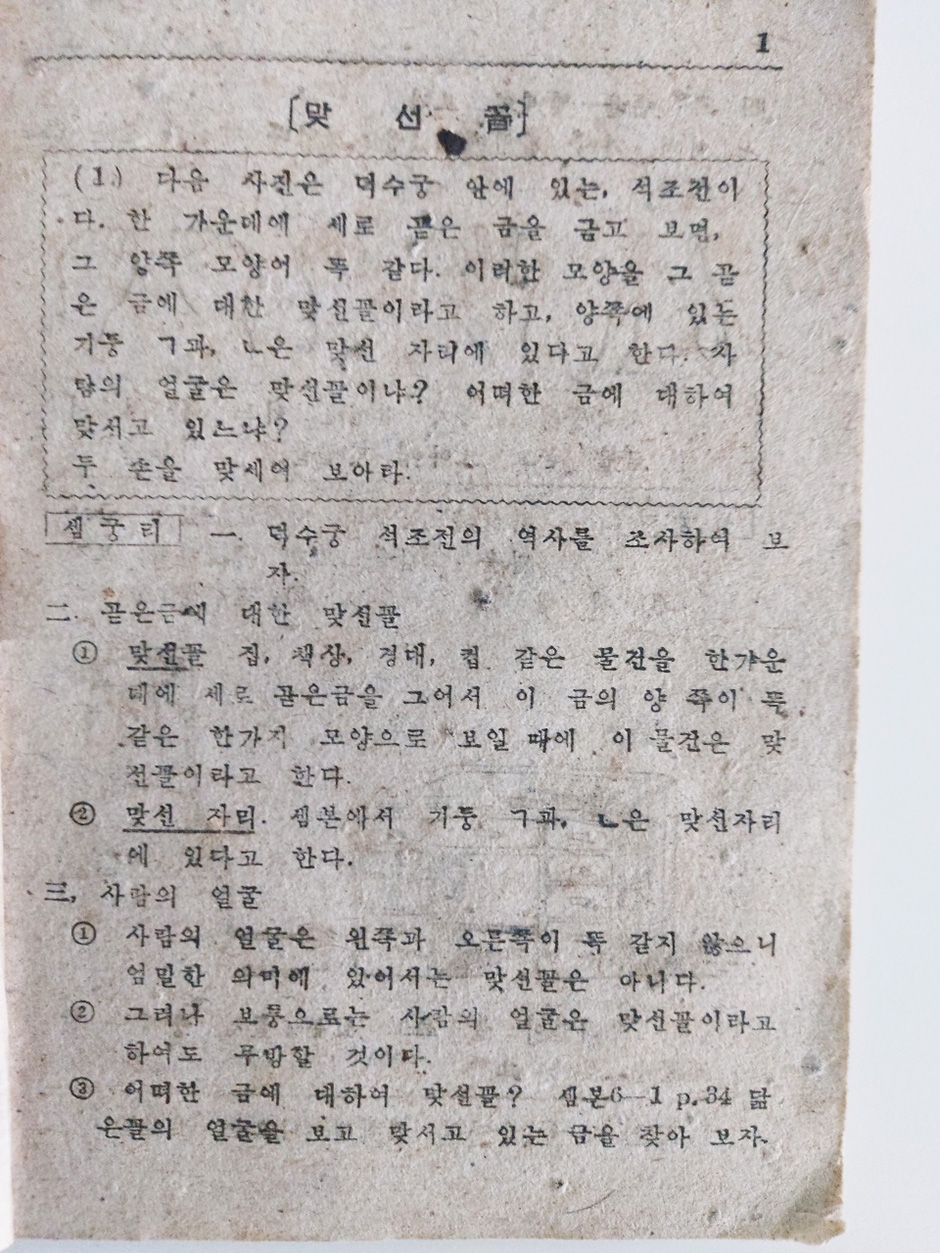 1
[맞 선 꼴]
(1.) 다음 사진은 덕수궁 안에 있는, 석조전이
다. 한 가운데에 세로 곧은 금을 긋고 보면,
그 양쪽 모양이 똑 같다. 이러한 모양을 그 곧
은 금에 대한 맞선꼴이라고 하고, 양쪽에 있는
기둥 ㄱ과, ㄴ은 맞선 자리에 있다고 한다. 사
람의 얼굴은 맞선꼴이냐? 어떠한 금에 대하여
맞서고 있느냐?
두 손을 맞세어 보아라.
셈궁리 一. 덕수궁 석조전의 역사를 조사하여 보
자.
二. 곧은금에 대한 맞선꼴
① 맞선꼴 집, 책상, 경대, 컵 같은 물건을 한가운
데에 세로 곧은금을 그어서 이 금의 양 쪽이 똑
같은 한가지 모양으로 보일 때에 이 물건은 맞
선꼴이라고 한다.
② 맞선 자리. 셈본에서 기둥 ㄱ과, ㄴ은 맞선자리
에 있다고 한다.
三, 사람의 얼굴
① 사람의 얼굴은 왼쪽과 오른쪽이 똑 같지 않으니
엄밀한 의미에 있어서는 맞선꼴은 아니다.
② 그러나 보통으로는 사람의 얼굴은 맞선꼴이라고
하여도 무방할 것이다.
③ 어떠한 금에 대하여 맞선꼴? 셈본6—1 p.34 닮
은꼴의 얼굴을 보고 맞서고 있는 금을 찾아 보자.